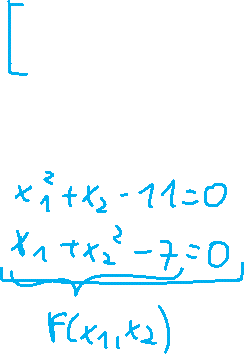 [
x₁² + x₂ - 11 = 0
x₁ + x₂² - 7 = 0
F(x₁, x₂)